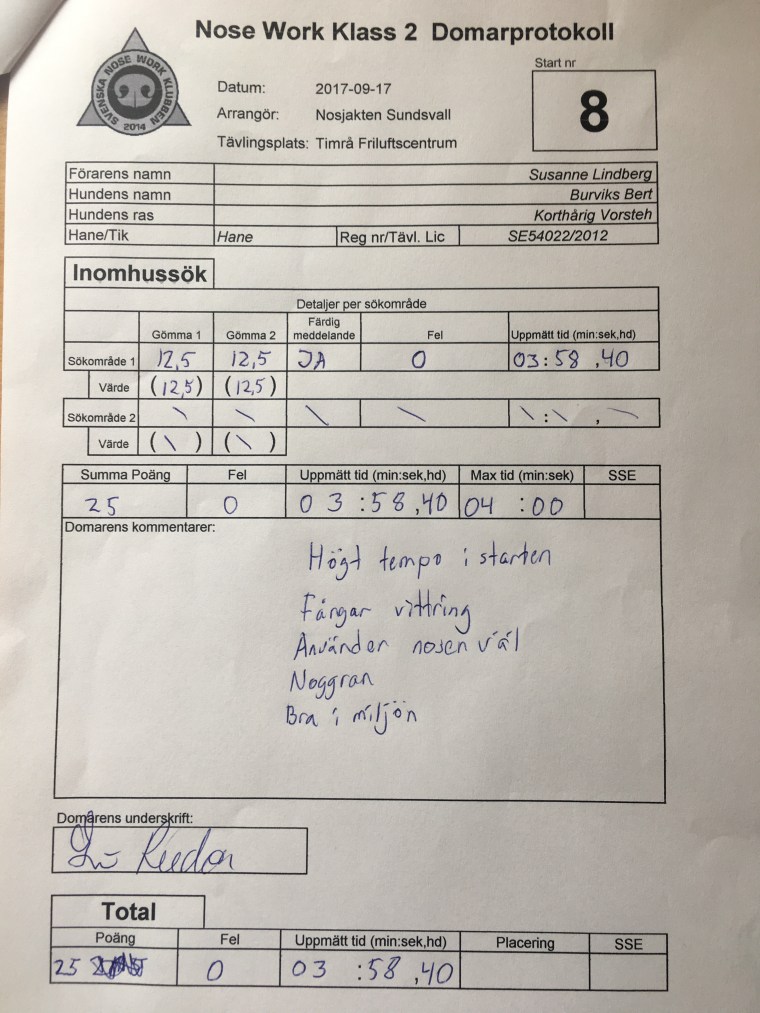 Nose Work Klass 2 Domarprotokoll
SVENSKA NOSE WORK KLUBBEN
2014
Start nr
8
Datum: 2017-09-17
Arrangör: Nosjakten Sundsvall
Tävlingsplats: Timrå Friluftscentrum
Förarens namn Susanne Lindberg
Hundens namn Burviks Bert
Hundens ras Korthårig Vorsteh
Hane/Tik Hane Reg nr/Tävl. Lic SE54022/2012
Inomhussök
Detaljer per sökområde
Gömma 1 Gömma 2 Färdig meddelande Fel Uppmätt tid (min:sek,hd)
Sökområde 1 12,5 12,5 JA 0 03:58,40
Värde (12,5) (12,5)
Sökområde 2 \ \ \ \ \:\,\
Värde (\) (\)
Summa Poäng Fel Uppmätt tid (min:sek,hd) Max tid (min:sek) SSE
25 0 03:58,40 04:00
Domarens kommentarer:
Högt tempo i starten
Fångar vittring
Använder nosen väl
Noggran
Bra i miljön
Domarens underskrift:
Total
Poäng Fel Uppmätt tid (min:sek,hd) Placering SSE
25 0 03:58,40